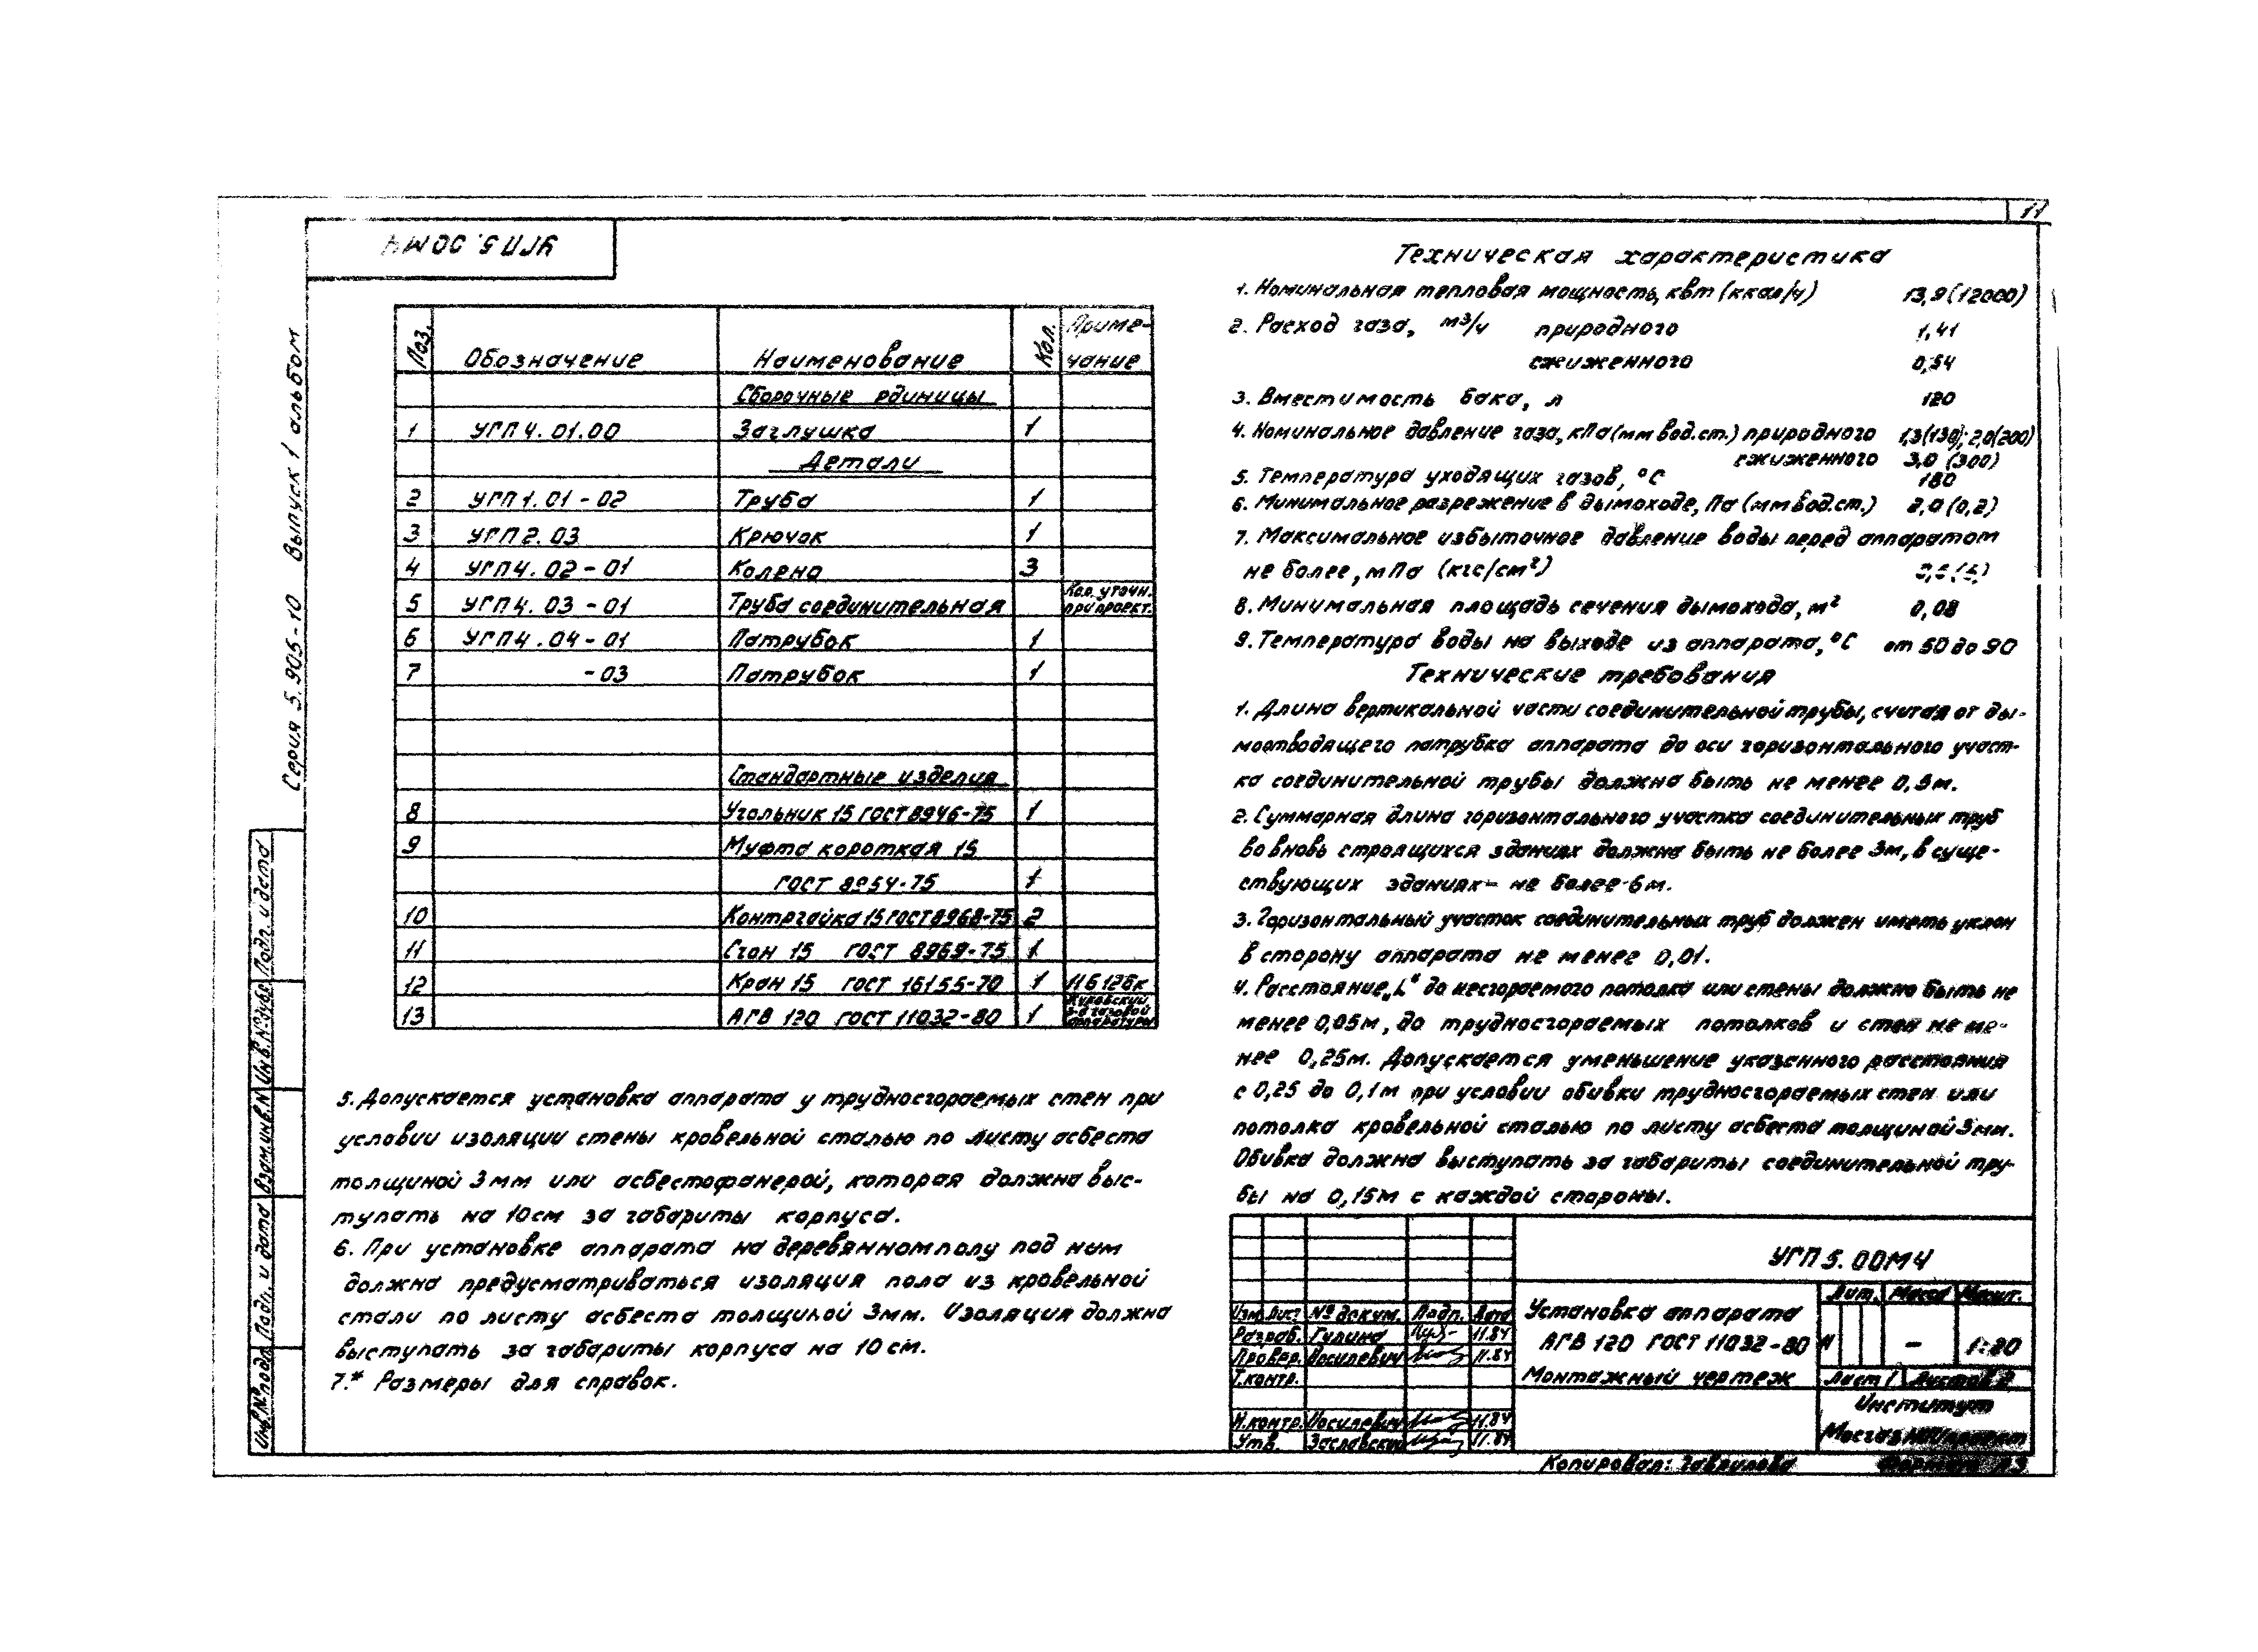 11
УГП 5.00МЧ
Серия 5.905-10 Выпуск 1 альбом
Поз. Обозначение Наименование Кол. Приме-
чание
Сборочные единицы
1 УГП 4.01.00 Заглушка 1
Детали
2 УГП 1.01-02 Труба 1
3 УГП 2.03 Крючок 1
4 УГП 4.02-01 Колено 3
5 УГП 4.03-01 Труба соединительная Кол. уточн.
при проект.
6 УГП 4.04-01 Патрубок 1
7 -03 Патрубок 1
Стандартные изделия
8 Угольник 15 ГОСТ 8946-75 1
9 Муфта короткая 15
ГОСТ 8954-75 1
10 Контргайка 15 ГОСТ 8968-75 2
11 Сгон 15 ГОСТ 8969-75 1
12 Кран 15 ГОСТ 16155-70 1 11Б12бк
13 АГВ 120 ГОСТ 11032-80 1 Жуковский
з-д газовой
аппаратуры
5. Допускается установка аппарата у трудносгораемых стен при
условии изоляции стены кровельной сталью по листу асбеста
толщиной 3мм или асбестофанерой, которая должна выс-
тупать на 10см за габариты корпуса.
6. При установке аппарата на деревянном полу под ним
должна предусматриваться изоляция пола из кровельной
стали по листу асбеста толщиной 3мм. Изоляция должна
выступать за габариты корпуса на 10 см.
7.* Размеры для справок.
Техническая характеристика
1. Номинальная тепловая мощность, квт (ккал/ч) 13,9 (12000)
2. Расход газа, м³/ч природного 1,41
сжиженного 0,54
3. Вместимость бака, л 120
4. Номинальное давление газа, кПа (мм вод.ст.) природного 1,3(130); 2,0(200)
сжиженного 3,0 (300)
5. Температура уходящих газов, °С 180
6. Минимальное разрежение в дымоходе, Па (мм вод.ст.) 2,0 (0,2)
7. Максимальное избыточное давление воды перед аппаратом
не более, мПа (кгс/см²)
8. Минимальная площадь сечения дымохода, м² 0,08
9. Температура воды на выходе из аппарата, °С от 50 до 90
Технические требования
1. Длина вертикальной части соединительной трубы, считая от ды-
моотводящего патрубка аппарата до оси горизонтального участ-
ка соединительной трубы должна быть не менее 0,5м.
2. Суммарная длина горизонтального участка соединительных труб
во вновь строящихся зданиях должна быть не более 3м, в суще-
ствующих зданиях - не более 6м.
3. Горизонтальный участок соединительных труб должен иметь уклон
в сторону аппарата не менее 0,01.
4. Расстояние „L" до несгораемого потолка или стены должно быть не
менее 0,05м, до трудносгораемых потолков и стен не ме-
нее 0,25м. Допускается уменьшение указанного расстояния
с 0,25 до 0,1м при условии обивки трудносгораемых стен или
потолка кровельной сталью по листу асбеста толщиной 3мм.
Обивка должна выступать за габариты соединительной тру-
бы на 0,15м с каждой стороны.
УГП 5.00МЧ
Изм. Лист № докум. Подп. Дата
Разраб. Гулина 11.84
Провер. Иосилевич 11.84
Т.контр.
Н.контр. Иосилевич 11.84
Утв. Заславский 11.84
Установка аппарата
АГВ 120 ГОСТ 11032-80
Монтажный чертеж
Лит. Масса Масшт.
И – 1:20
Лист 1 Листов 2
Институт
МосгазНИИпроект
Копировал: Гаврилова Формат А3
Инв.№ подл. Подп. и дата Взам.инв.№ Инв.№ дубл. Подп. и дата